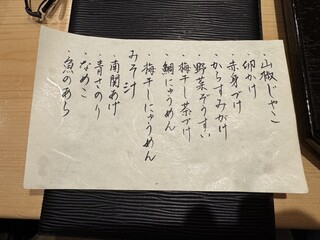 ・山椒じゃこ
・卵かけ
・赤身づけ
・からすみがけ
・野菜ぞうすい
・梅干し茶づけ
・鯛にゅうめん
・梅干しにゅうめん
みそ汁
・南関あげ
・青さのり
・なめこ
・魚のあら